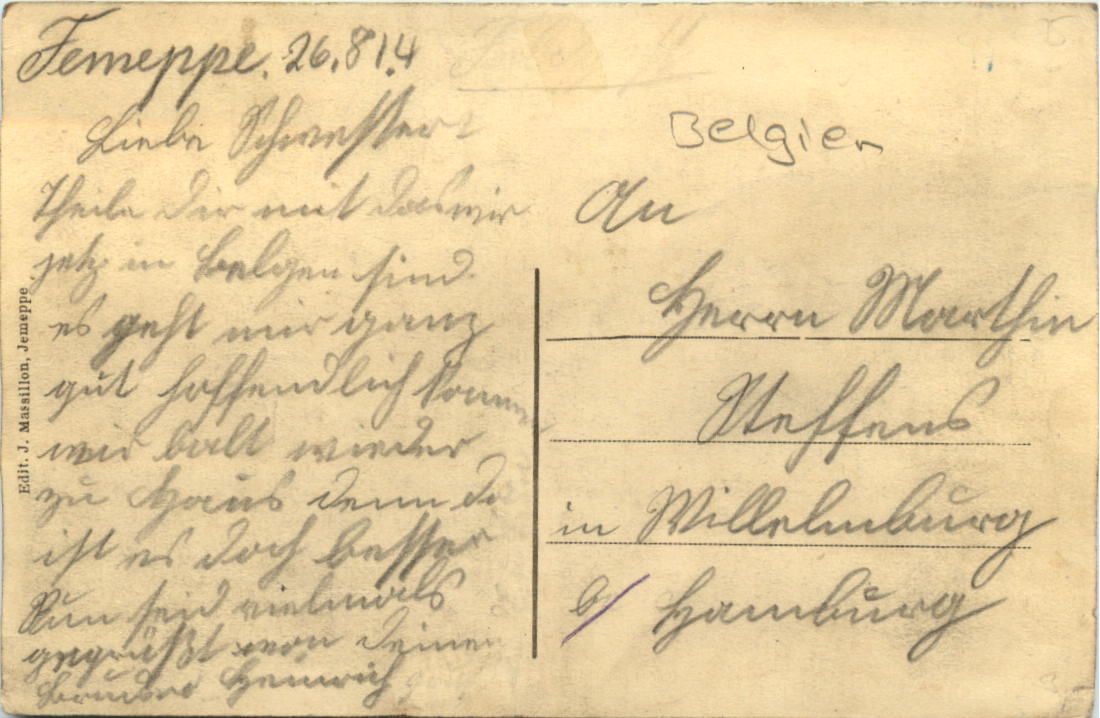 Jemeppe. 26.8 14
Liebe Schwester
Theile dir mit das wir
jetz in Belgen sind
es geht mir ganz
gut hoffendlich komm
wir balt wieder
zu Haus denn da
ist es doch besser
Nun seid vielmals
gegrüßt von deinen
Bruder Heinrich
Edit. J. Massillon, Jemeppe
Belgien
An
Herrn Marthin
Steffens
in Willelmburg
b/ Hamburg